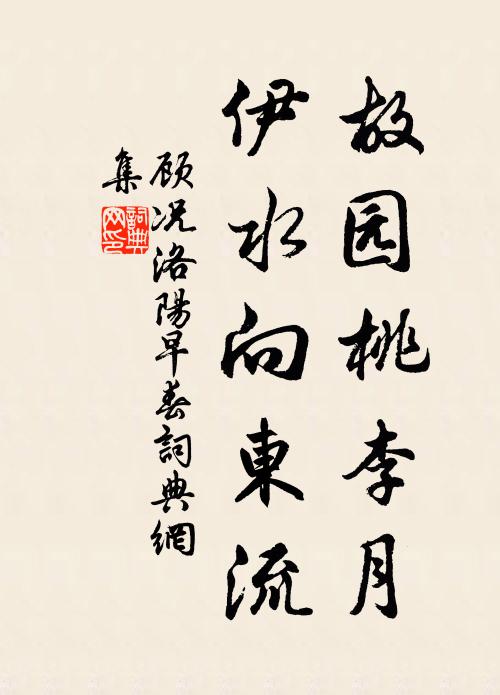 故园桃李月
伊水向東流
顾况洛陽早春詞典網
集
詞典
网印